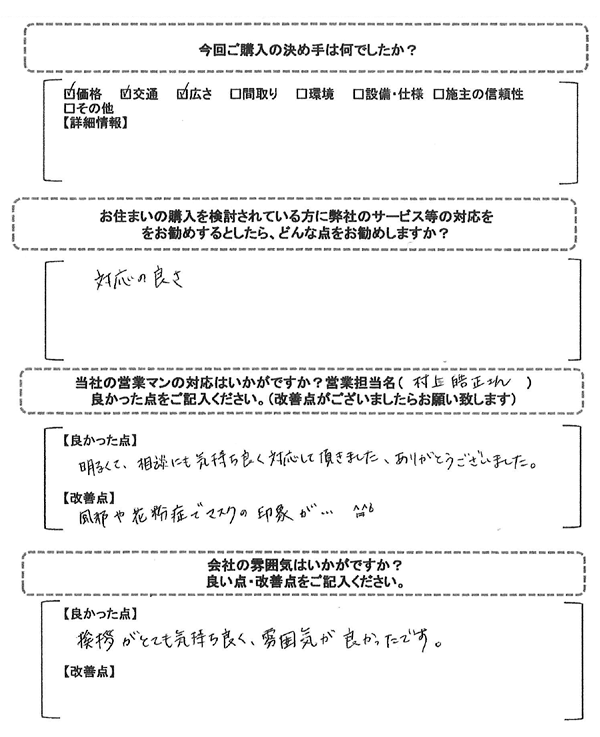 今回ご購入の決め手は何でしたか？
☑価格 ☑交通 ☑広さ □間取り □環境 □設備・仕様 □施主の信頼性
□その他
【詳細情報】
お住まいの購入を検討されている方に弊社のサービス等の対応を
をお勧めするとしたら、どんな点をお勧めしますか？
対応の良さ
当社の営業マンの対応はいかがですか？営業担当名（ 村上皓正さん ）
良かった点をご記入ください。（改善点がございましたらお願い致します）
【良かった点】
明るくて、相談にも気持ち良く対応して頂きました、ありがとうございました。
【改善点】
風邪や花粉症でマスクの印象が…
会社の雰囲気はいかがですか？
良い点・改善点をご記入ください。
【良かった点】
挨拶がとても気持ち良く、雰囲気が良かったです。
【改善点】